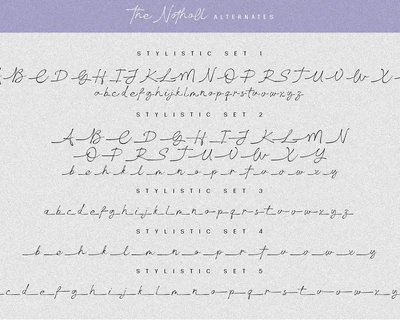 The Notholl ALTERNATES
STYLISTIC SET 1
A B C D G H I J K L M N O P R S T U V W X
a b c d e f g h i j k l m n o p q r s t u v w x y z
STYLISTIC SET 2
A B C D G H I J K L M N
O P R S T U V W X Y
b e h k l m n o p r t u v w x y
STYLISTIC SET 3
a b c d e f g h i j k l m n o p q r s t u v w x y z
STYLISTIC SET 4
b e h k l m n o p r t u v w x y
STYLISTIC SET 5
c d e f g h i j k l m n o p q r s t u v w x y